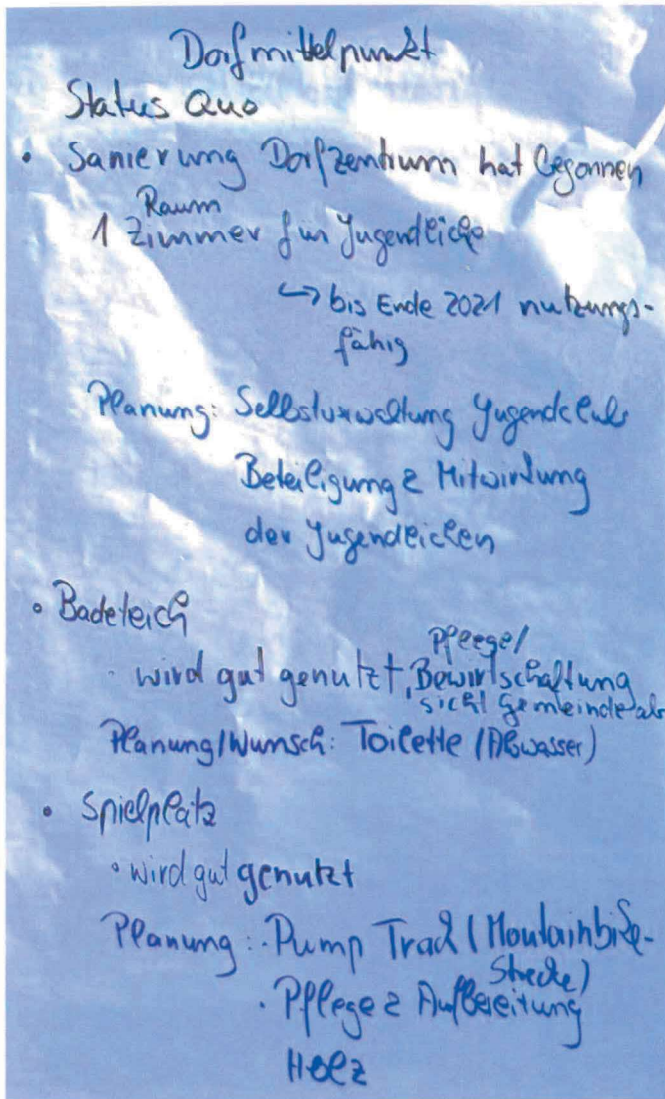 Dorfmittelpunkt
Status Quo
• Sanierung Dorfzentrum hat begonnen
Raum
1 Zimmer für Jugendliche
↳ bis Ende 2021 nutzungs-
fähig
Planung: Selbstverwaltung Jugendclub
Beteiligung & Mitwirkung
der Jugendlichen
• Badeteich
Pflege/
· wird gut genutzt, Bewirtschaftung
sichert Gemeinde ab
Planung/Wunsch: Toilette (Abwasser)
• Spielplatz
• wird gut genutzt
Planung: · Pump Track (Moutainbike-
Strecke)
· Pflege & Aufbereitung
Holz